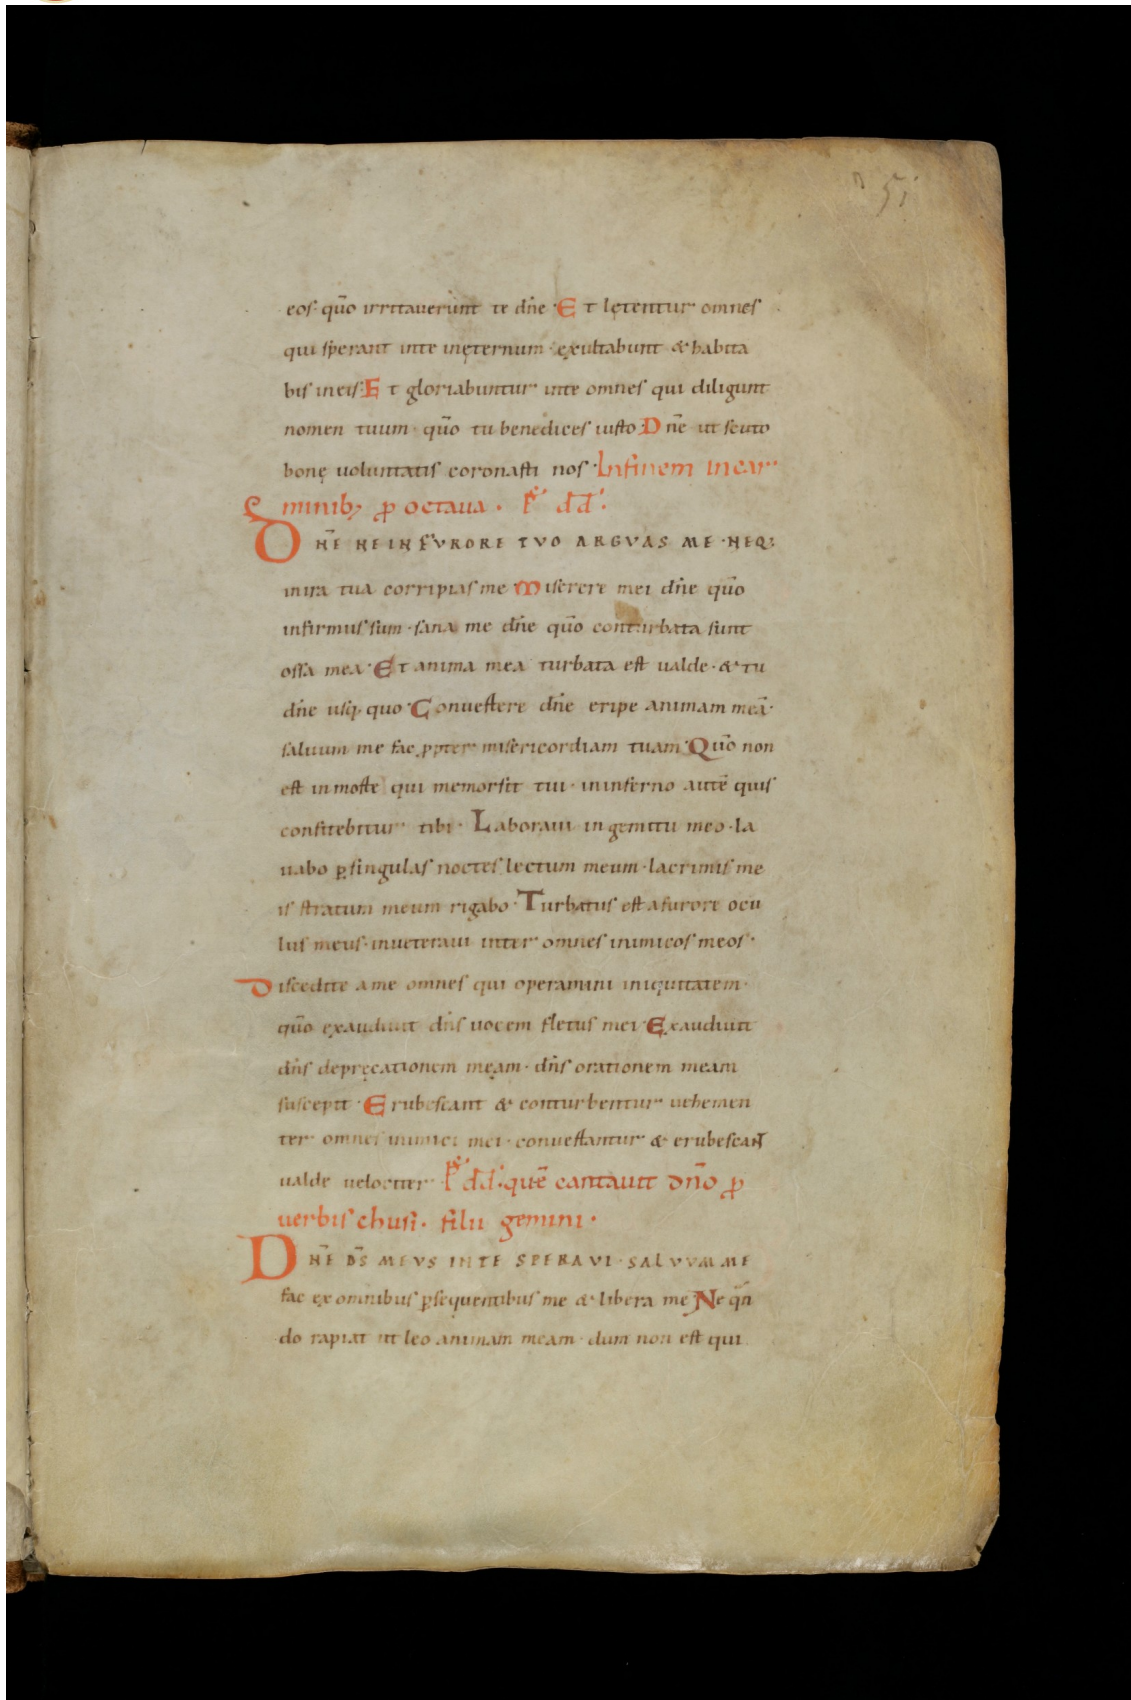 51
eos· qūo irritauerunt te dn̄e· Et lętentur omnes
qui sperant inte inęternum· exultabunt & habita
bis ineis· Et gloriabuntur inte omnes qui diligunt
nomen tuum· qūo tu benedices iusto Dn̄e ut scuto
bonę uoluntatis coronasti nos· Infinem incar
minib; ꝓ octaua· dd̄·
DN̄E NE IN FURORE TUO ARGUAS ME· NEQ:
inira tua corripias me Miserere mei dn̄e qūo
infirmus sum· sana me dn̄e qūo conturbata sunt
ossa mea· Et anima mea turbata est ualde· & tu
dn̄e usq; quo· Conuertere dn̄e eripe animam meā·
saluum me fac ꝓpter misericordiam tuam· Qūo non
est inmorte qui memorsit tui· ininferno autē quis
confitebitur tibi· Laboraui in gemitu meo· la
uabo ꝑsingulas noctes lectum meum· lacrimis me
is stratum meum rigabo· Turbatus est afurore ocu
lus meus· inueteraui inter omnes inimicos meos·
Discedite ame omnes qui operamini iniquitatem·
qūo exaudiuit dn̄s uocem fletus mei· Exaudiuit
dn̄s depręcationem męam· dn̄s orationem meam
suscepit· Erubescant & conturbentur uehemen
ter omnes inimici mei· conuertantur & erubescant
ualde uelociter· dd̄· quē cantauit dn̄o ꝓ
uerbis chusi· filii gemini·
DN̄E DS̄ MEUS INTE SPERAUI· SALUUM ME
fac ex omnibus ꝑsequentibus me & libera me Ne qn̄
do rapiat ut leo animam meam· dum non est qui